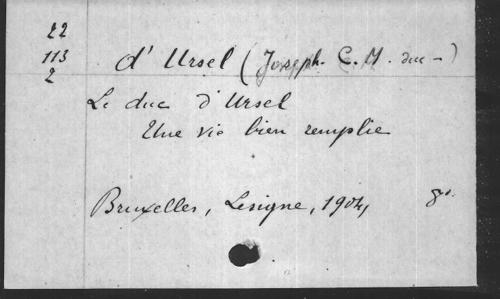 22
113
2
d'Ursel (Joseph. C. M. duc -)
Le duc d'Ursel
Une vie bien remplie
Bruxelles, Lesigne, 1904, 8°.